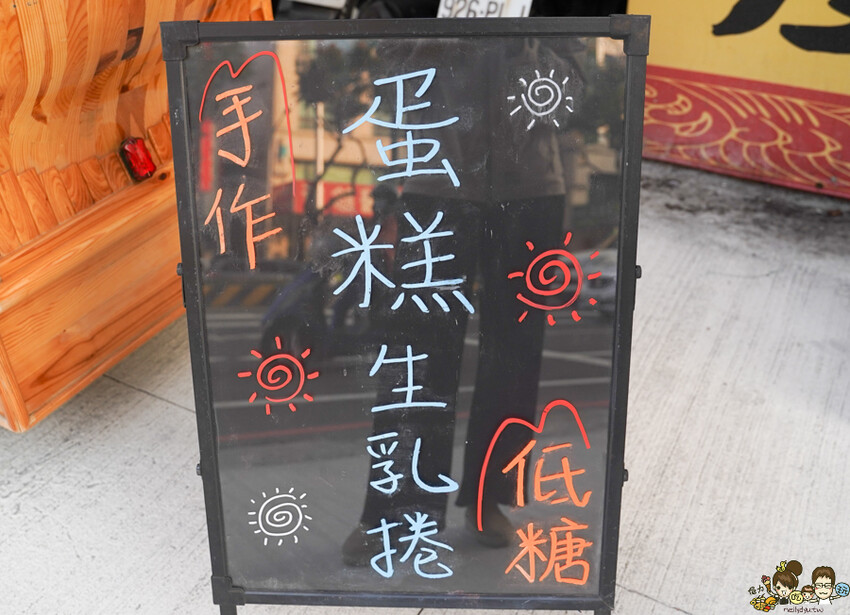 926-PL
手作
蛋糕生乳捲
低糖
nellydyu.tw